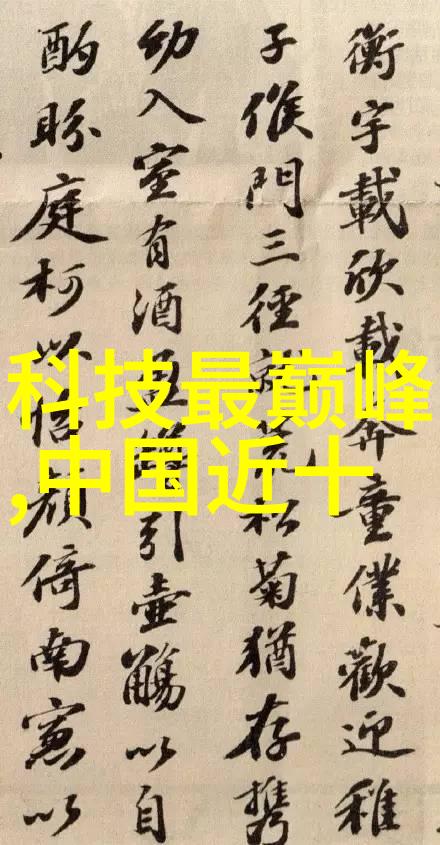 衡宇載欣載奔童僕歡迎稚
子候門三徑就荒松菊猶存携
幼入室有酒盈引壺觴以自
酌眄庭柯以怡顔倚南窻以
科技最巅峰
,中国近十